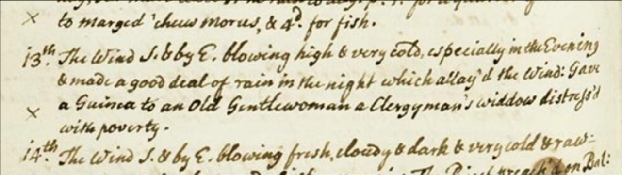 to marged 'chus morus, & 4d. for fish.
13th. The Wind S. & by E. blowing high & very cold, especially in the Evening
& made a good deal of rain in the night which allay'd the Wind: Gave
x a Guinea to an Old Gentlewoman a Clergyman's widdow distress'd
with poverty.
14th The Wind S. & by E. blowing fresh, cloudy & dark & very cold & raw: